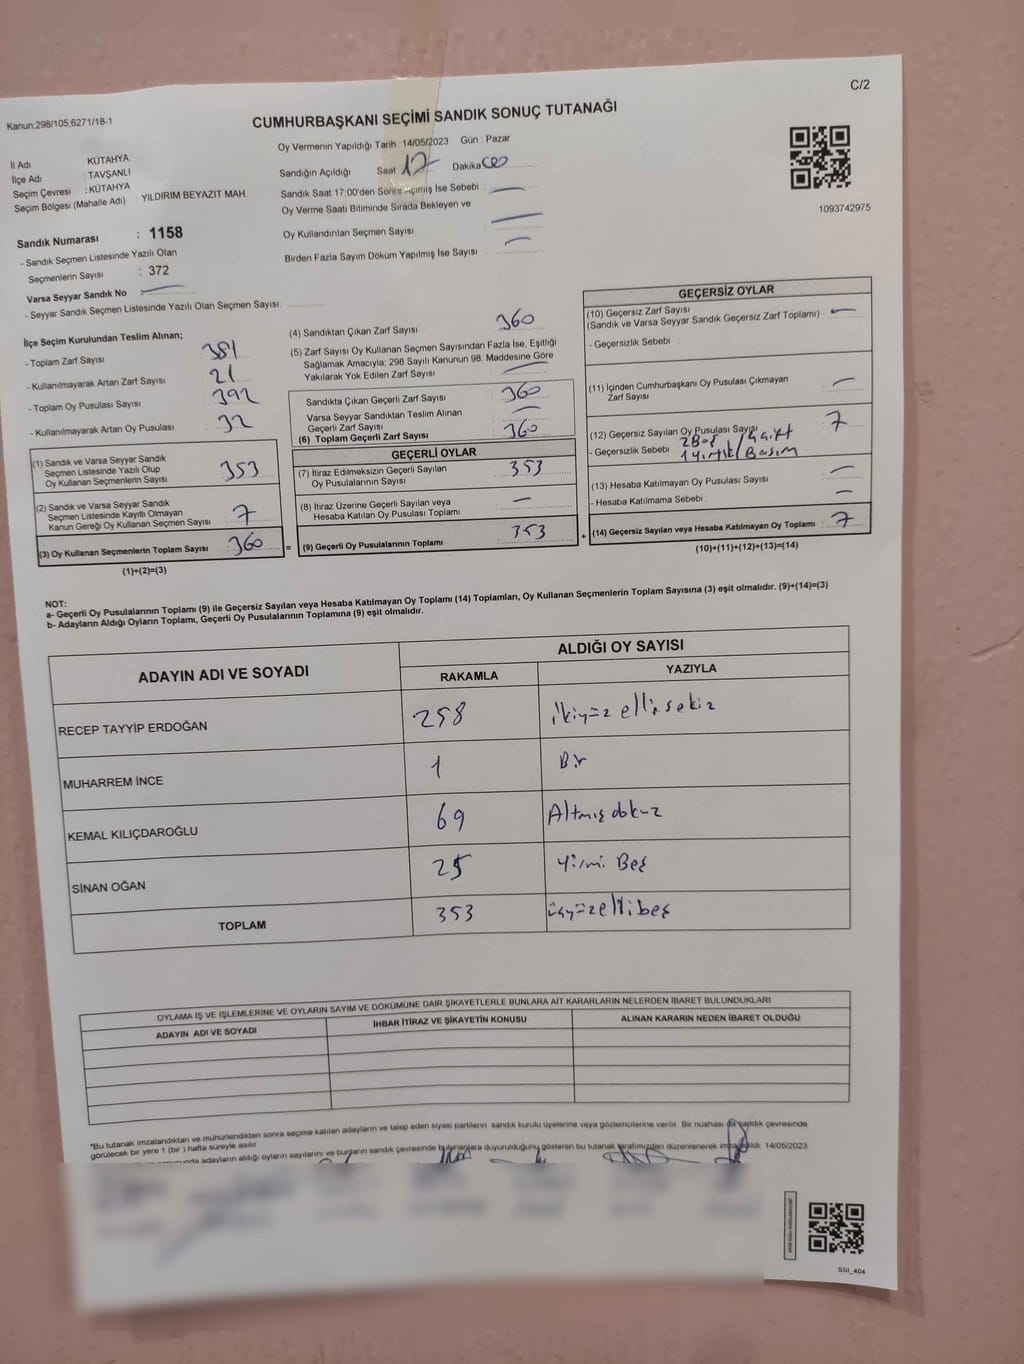 C/2
Kanun;298/105;6271/18-1
CUMHURBAŞKANI SEÇİMİ SANDIK SONUÇ TUTANAĞI
Oy Vermenin Yapıldığı Tarih :14/05/2023 Gün : Pazar
İl Adı : KÜTAHYA
İlçe Adı : TAVŞANLI
Seçim Çevresi : KÜTAHYA
Seçim Bölgesi (Mahalle Adı) : YILDIRIM BEYAZIT MAH.
Sandığın Açıldığı Saat 17 Dakika 00
Sandık Saat 17:00'den Sonra Açılmış İse Sebebi : —
Oy Verme Saati Bitiminde Sırada Bekleyen ve
Oy Kullandırılan Seçmen Sayısı : —
Birden Fazla Sayım Döküm Yapılmış İse Sayısı : —
1093742975
Sandık Numarası : 1158
- Sandık Seçmen Listesinde Yazılı Olan
Seçmenlerin Sayısı : 372
Varsa Seyyar Sandık No —
- Seyyar Sandık Seçmen Listesinde Yazılı Olan Seçmen Sayısı:
İlçe Seçim Kurulundan Teslim Alınan;
- Toplam Zarf Sayısı : 381
- Kullanılmayarak Artan Zarf Sayısı : 21
- Toplam Oy Pusulası Sayısı : 392
- Kullanılmayarak Artan Oy Pusulası : 32
(1) Sandık ve Varsa Seyyar Sandık
Seçmen Listesinde Yazılı Olup
Oy Kullanan Seçmenlerin Sayısı : 353
(2) Sandık ve Varsa Seyyar Sandık
Seçmen Listesinde Kayıtlı Olmayan
Kanun Gereği Oy Kullanan Seçmen Sayısı : 7
(3) Oy Kullanan Seçmenlerin Toplam Sayısı : 360
(1)+(2)=(3)
(4) Sandıktan Çıkan Zarf Sayısı : 360
(5) Zarf Sayısı Oy Kullanan Seçmen Sayısından Fazla İse, Eşitliği
Sağlamak Amacıyla, 298 Sayılı Kanunun 98. Maddesine Göre
Yakılarak Yok Edilen Zarf Sayısı : —
Sandıkta Çıkan Geçerli Zarf Sayısı : 360
Varsa Seyyar Sandıktan Teslim Alınan
Geçerli Zarf Sayısı : —
(6) Toplam Geçerli Zarf Sayısı : 360
GEÇERLİ OYLAR
(7) İtiraz Edilmeksizin Geçerli Sayılan
Oy Pusulalarının Sayısı : 353
(8) İtiraz Üzerine Geçerli Sayılan veya
Hesaba Katılan Oy Pusulası Toplamı : —
= (9) Geçerli Oy Pusulalarının Toplamı : 353 +
GEÇERSİZ OYLAR
(10) Geçersiz Zarf Sayısı
(Sandık ve Varsa Seyyar Sandık Geçersiz Zarf Toplamı) : —
- Geçersizlik Sebebi :
(11) İçinden Cumhurbaşkanı Oy Pusulası Çıkmayan
Zarf Sayısı : —
(12) Geçersiz Sayılan Oy Pusulası Sayısı : 7
- Geçersizlik Sebebi 2 Boş /
1 yırtık/ Basım
(13) Hesaba Katılmayan Oy Pusulası Sayısı : —
- Hesaba Katılmama Sebebi : —
(14) Geçersiz Sayılan veya Hesaba Katılmayan Oy Toplamı : 7
(10)+(11)+(12)+(13)=(14)
NOT:
a- Geçerli Oy Pusulalarının Toplamı (9) ile Geçersiz Sayılan veya Hesaba Katılmayan Oy Toplamı (14) Toplamları, Oy Kullanan Seçmenlerin Toplam Sayısına (3) eşit olmalıdır. (9)+(14)=(3)
b- Adayların Aldığı Oyların Toplamı, Geçerli Oy Pusulalarının Toplamına (9) eşit olmalıdır.
ADAYIN ADI VE SOYADI ALDIĞI OY SAYISI
RAKAMLA YAZIYLA
RECEP TAYYİP ERDOĞAN 258 ikiyüz ellisekiz
MUHARREM İNCE 1 Bir
KEMAL KILIÇDAROĞLU 69 Altmış dokuz
SİNAN OĞAN 25 Yirmi Beş
TOPLAM 353 üçyüzellibeş
OYLAMA İŞ VE İŞLEMLERİNE VE OYLARIN SAYIM VE DÖKÜMÜNE DAİR ŞİKAYETLERLE BUNLARA AİT KARARLARIN NELERDEN İBARET BULUNDUKLARI
ADAYIN ADI VE SOYADI İHBAR İTİRAZ VE ŞİKAYETİN KONUSU ALINAN KARARIN NEDEN İBARET OLDUĞU
*Bu tutanak imzalandıktan ve mühürlendikten sonra seçime katılan adayların ve talep eden siyasi partilerin sandık kurulu üyelerine veya gözlemcilerine verilir. Bir nüshası da sandık çevresinde
görülecek bir yere 1 (bir ) hafta süreyle asılır.
adayların aldığı oyların sayılarını ve bunların sandık çevresinde bulunanlara duyurulduğunu gösteren bu tutanak tarafımızdan düzenlenerek imzalandı. 14/05/2023
SSİ_404